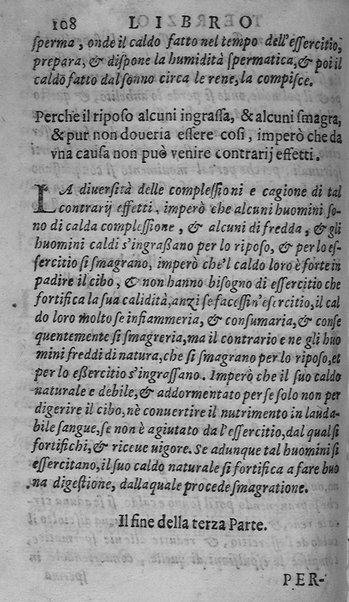 108 LIBRO
sperma, onde il caldo fatto nel tempo dell'essercitio,
prepara, & dispone la humidità spermatica, & poi il
caldo fatto dal sonno circa le rene, la compisce.
Perche il riposo alcuni ingrassa, & alcuni smagra,
& pur non doueria essere cosi, imperò che da
vna causa non può venire contrarij effetti.
LA diuersità delle complessioni e cagione di tal
contrarij effetti, imperò che alcuni huomini so
no di calda complessione, & alcuni di fredda, & gli
huomini caldi s'ingrassano per lo riposo, & per lo es-
sercitio si smagrano, imperò che'l caldo loro è forte in
padire il cibo, & non hanno bisogno di essercitio che
fortifica la sua calidità, anzi se facessin'esercitio, il cal
do loro molto se infiammeria, & consumaria, & conse
quentemente si smagreria, ma il contrario e ne gli huo
mini freddi di natura, che si smagrano per lo riposo, et
per lo eßercitio s'ingrassano. Imperò che il suo caldo
naturale e debile, & addormentato per se solo non per
digerire il cibo, nè conuertire il nutrimento in lauda-
bile sangue, se non è agiutato da l'essercitio, dal qual si
fortifichi, & riceue uigore. Se adunque tal huomini si
essercitano, il suo caldo naturale si fortifica a fare buo
na digestione, dalla quale procede smagratione.
Il fine della terza Parte.
PER-